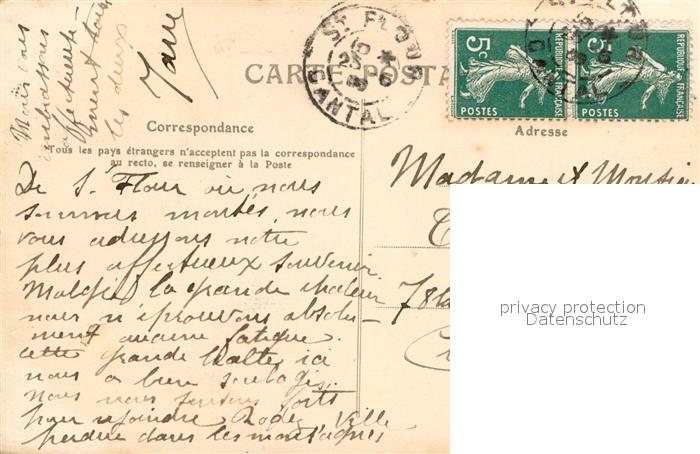 Mais vous
embrassons
affectueuse-
ment tous
les deux
ST FLOUR
CANTAL
ST FLOUR
CANTAL
5c
RÉPUBLIQUE FRANÇAISE
POSTES
5c
RÉPUBLIQUE FRANÇAISE
POSTES
CARTE POSTA
Correspondance
Adresse
Tous les pays étrangers n'acceptent pas la correspondance
au recto, se renseigner à la Poste
De St Flour où nous
sommes montés, nous
vous adressons notre
plus affectueux souvenir.
Malgré la grande chaleur
nous n'éprouvons absolu-
ment aucune fatigue.
Cette grande halte ici
nous a bien soulagés.
Nous nous sentons forts
pour rejoindre Rodez Ville
perdue dans les montagnes
Madame & Monsieu
78
privacy protection
Datenschutz